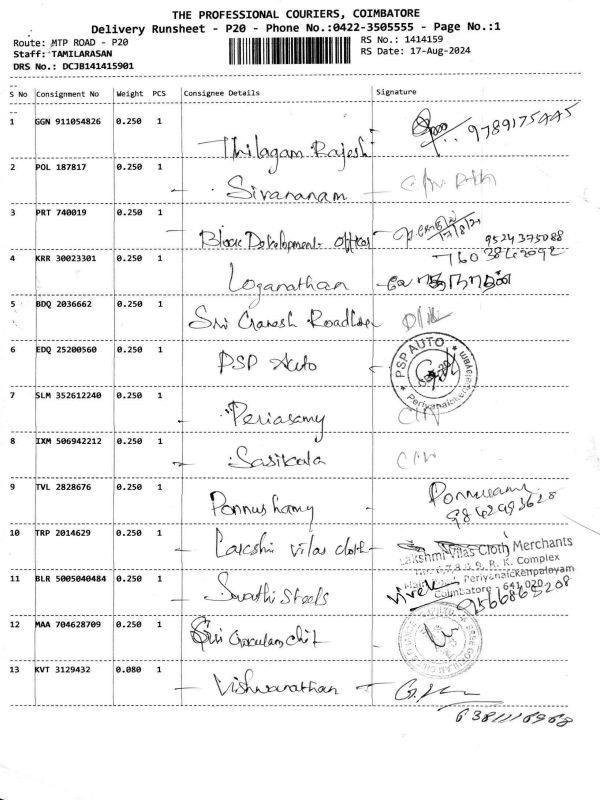 THE PROFESSIONAL COURIERS, COIMBATORE
Delivery Runsheet - P20 - Phone No.:0422-3505555 - Page No.:1
Route: MTP ROAD - P20 RS No.: 1414159
Staff: TAMILARASAN RS Date: 17-Aug-2024
DRS No.: DCJB141415901
S No Consignment No Weight PCS Consignee Details Signature
1 GGN 911054826 0.250 1 Thilagam Rajesh 9789175445
2 POL 187817 0.250 1 Sivananam
3 PRT 740019 0.250 1 Block Development officer 17/8/24
9524375088
4 KRR 30023301 0.250 1 Loganathan 7603842092
லோகநாதன்
5 BDQ 2036662 0.250 1 Sri Ganesh Roadlines
6 EDQ 25200560 0.250 1 PSP Auto PSP AUTO
7 SLM 352612240 0.250 1 Periasamy
8 IXM 506942212 0.250 1 Sasikala
9 TVL 2828676 0.250 1 Ponnushamy
9842993628
10 TRP 2014629 0.250 1 Lakshmi Vilas cloth Lakshmi Vilas Cloth Merchants
6,7,8 & 9, R. K. Complex
Periyanaickenpalayam
Coimbatore - 641 020
11 BLR 5005040484 0.250 1 Swathi Steels Vivek 9566863208
12 MAA 704628709 0.250 1 Sri Gokulam chit
13 KVT 3129432 0.080 1 Vishwanathan
6381116968